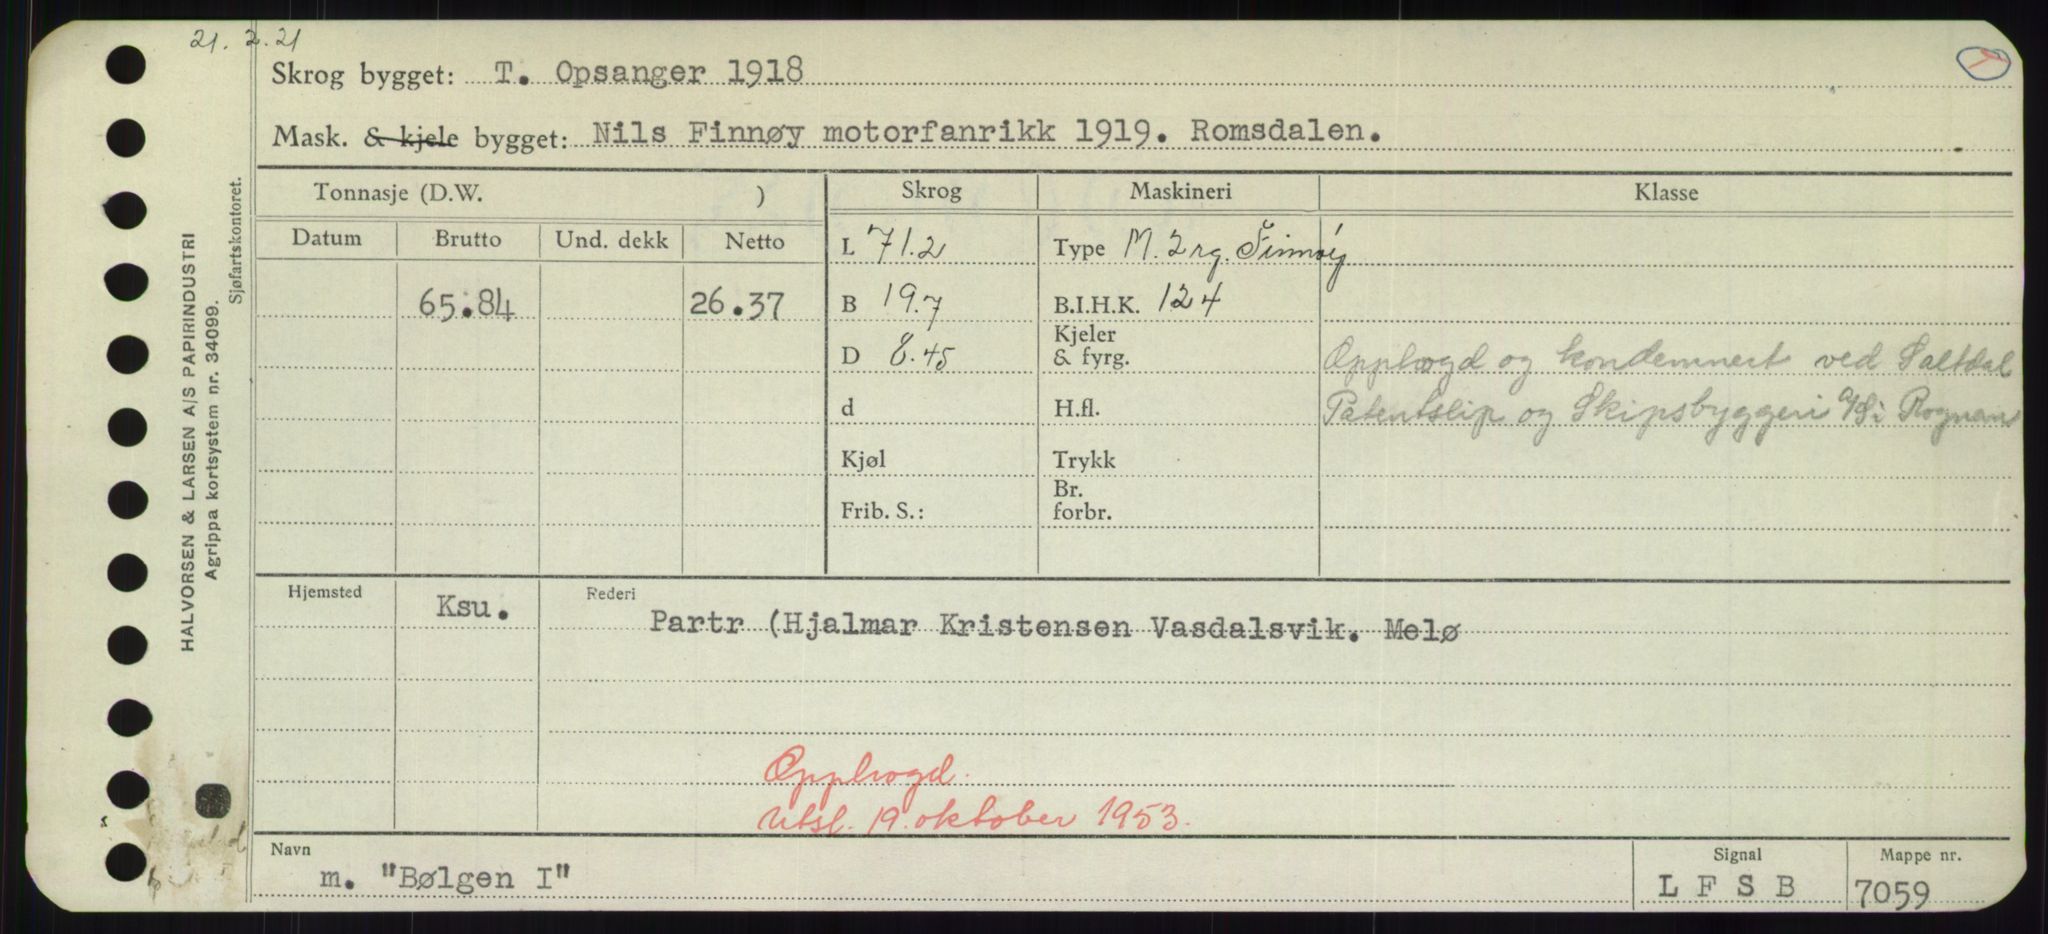 21. 2. 21
Skrog bygget: T. Opsanger 1918
Mask. & kjele bygget: Nils Finnøy motorfanrikk 1919. Romsdalen.
HALVORSEN & LARSEN A/S PAPIRINDUSTRI
Agrippa kortsystem nr. 34099.
Sjøfartskontoret.
Tonnasje (D.W. )
Skrog Maskineri Klasse
Datum Brutto Und. dekk Netto
L 71.2 Type M. 2 rg. Finnøy
65.84 26.37 B 19.7 B.I.H.K. 124
D 8.45 Kjeler
& fyrg.
Opphogd og kondemnert ved Saltdal
d H.fl. Patentslip og Skipsbyggeri A/S i Rognan
Kjøl Trykk
Frib. S.: Br.
forbr.
Hjemsted Ksu. Rederi
Partr (Hjalmar Kristensen Vasdalsvik. Melø
Opphogd.
Utsl. 19. oktober 1953.
Navn Signal Mappe nr.
m. "Bølgen I" L F S B 7059